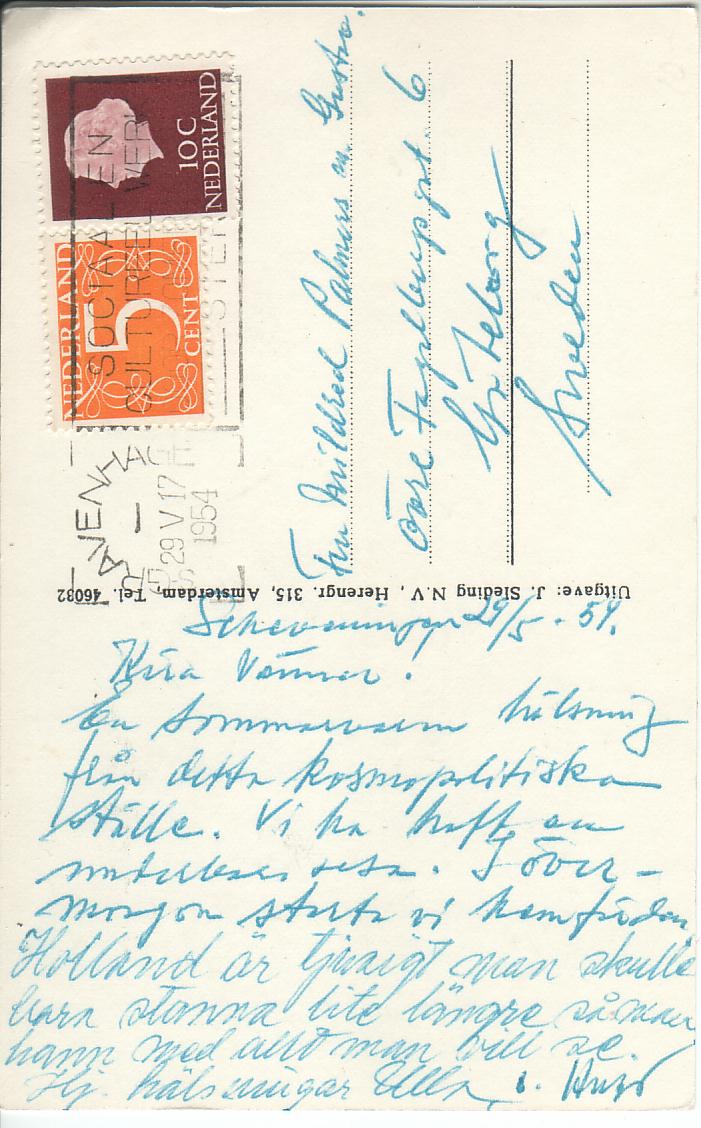 10 C
NEDERLAND
NEDERLAND
5
CENT
SOCIAAL EN
CULTUREEL WERK
'S-GRAVENHAGE
29 V 17
1954
Fru Mildred Palmers m. Gusta
Övre Fogelbergsgt. 6
Göteborg
Sweden
Uitgave: J. Sleding N.V., Herengr. 315, Amsterdam, Tel. 46082
Scheveningen 29/5 - 54.
Kära Vänner!
En sommarvarm hälsning
från detta kosmopolitiska
ställe. Vi ha haft en
underbar resa. I över-
morgon starta vi hemfärden
Holland är tjusigt man skulle
bara stanna lite längre så man
hann med allt man vill se.
Hj. hälsningar Ulla o.